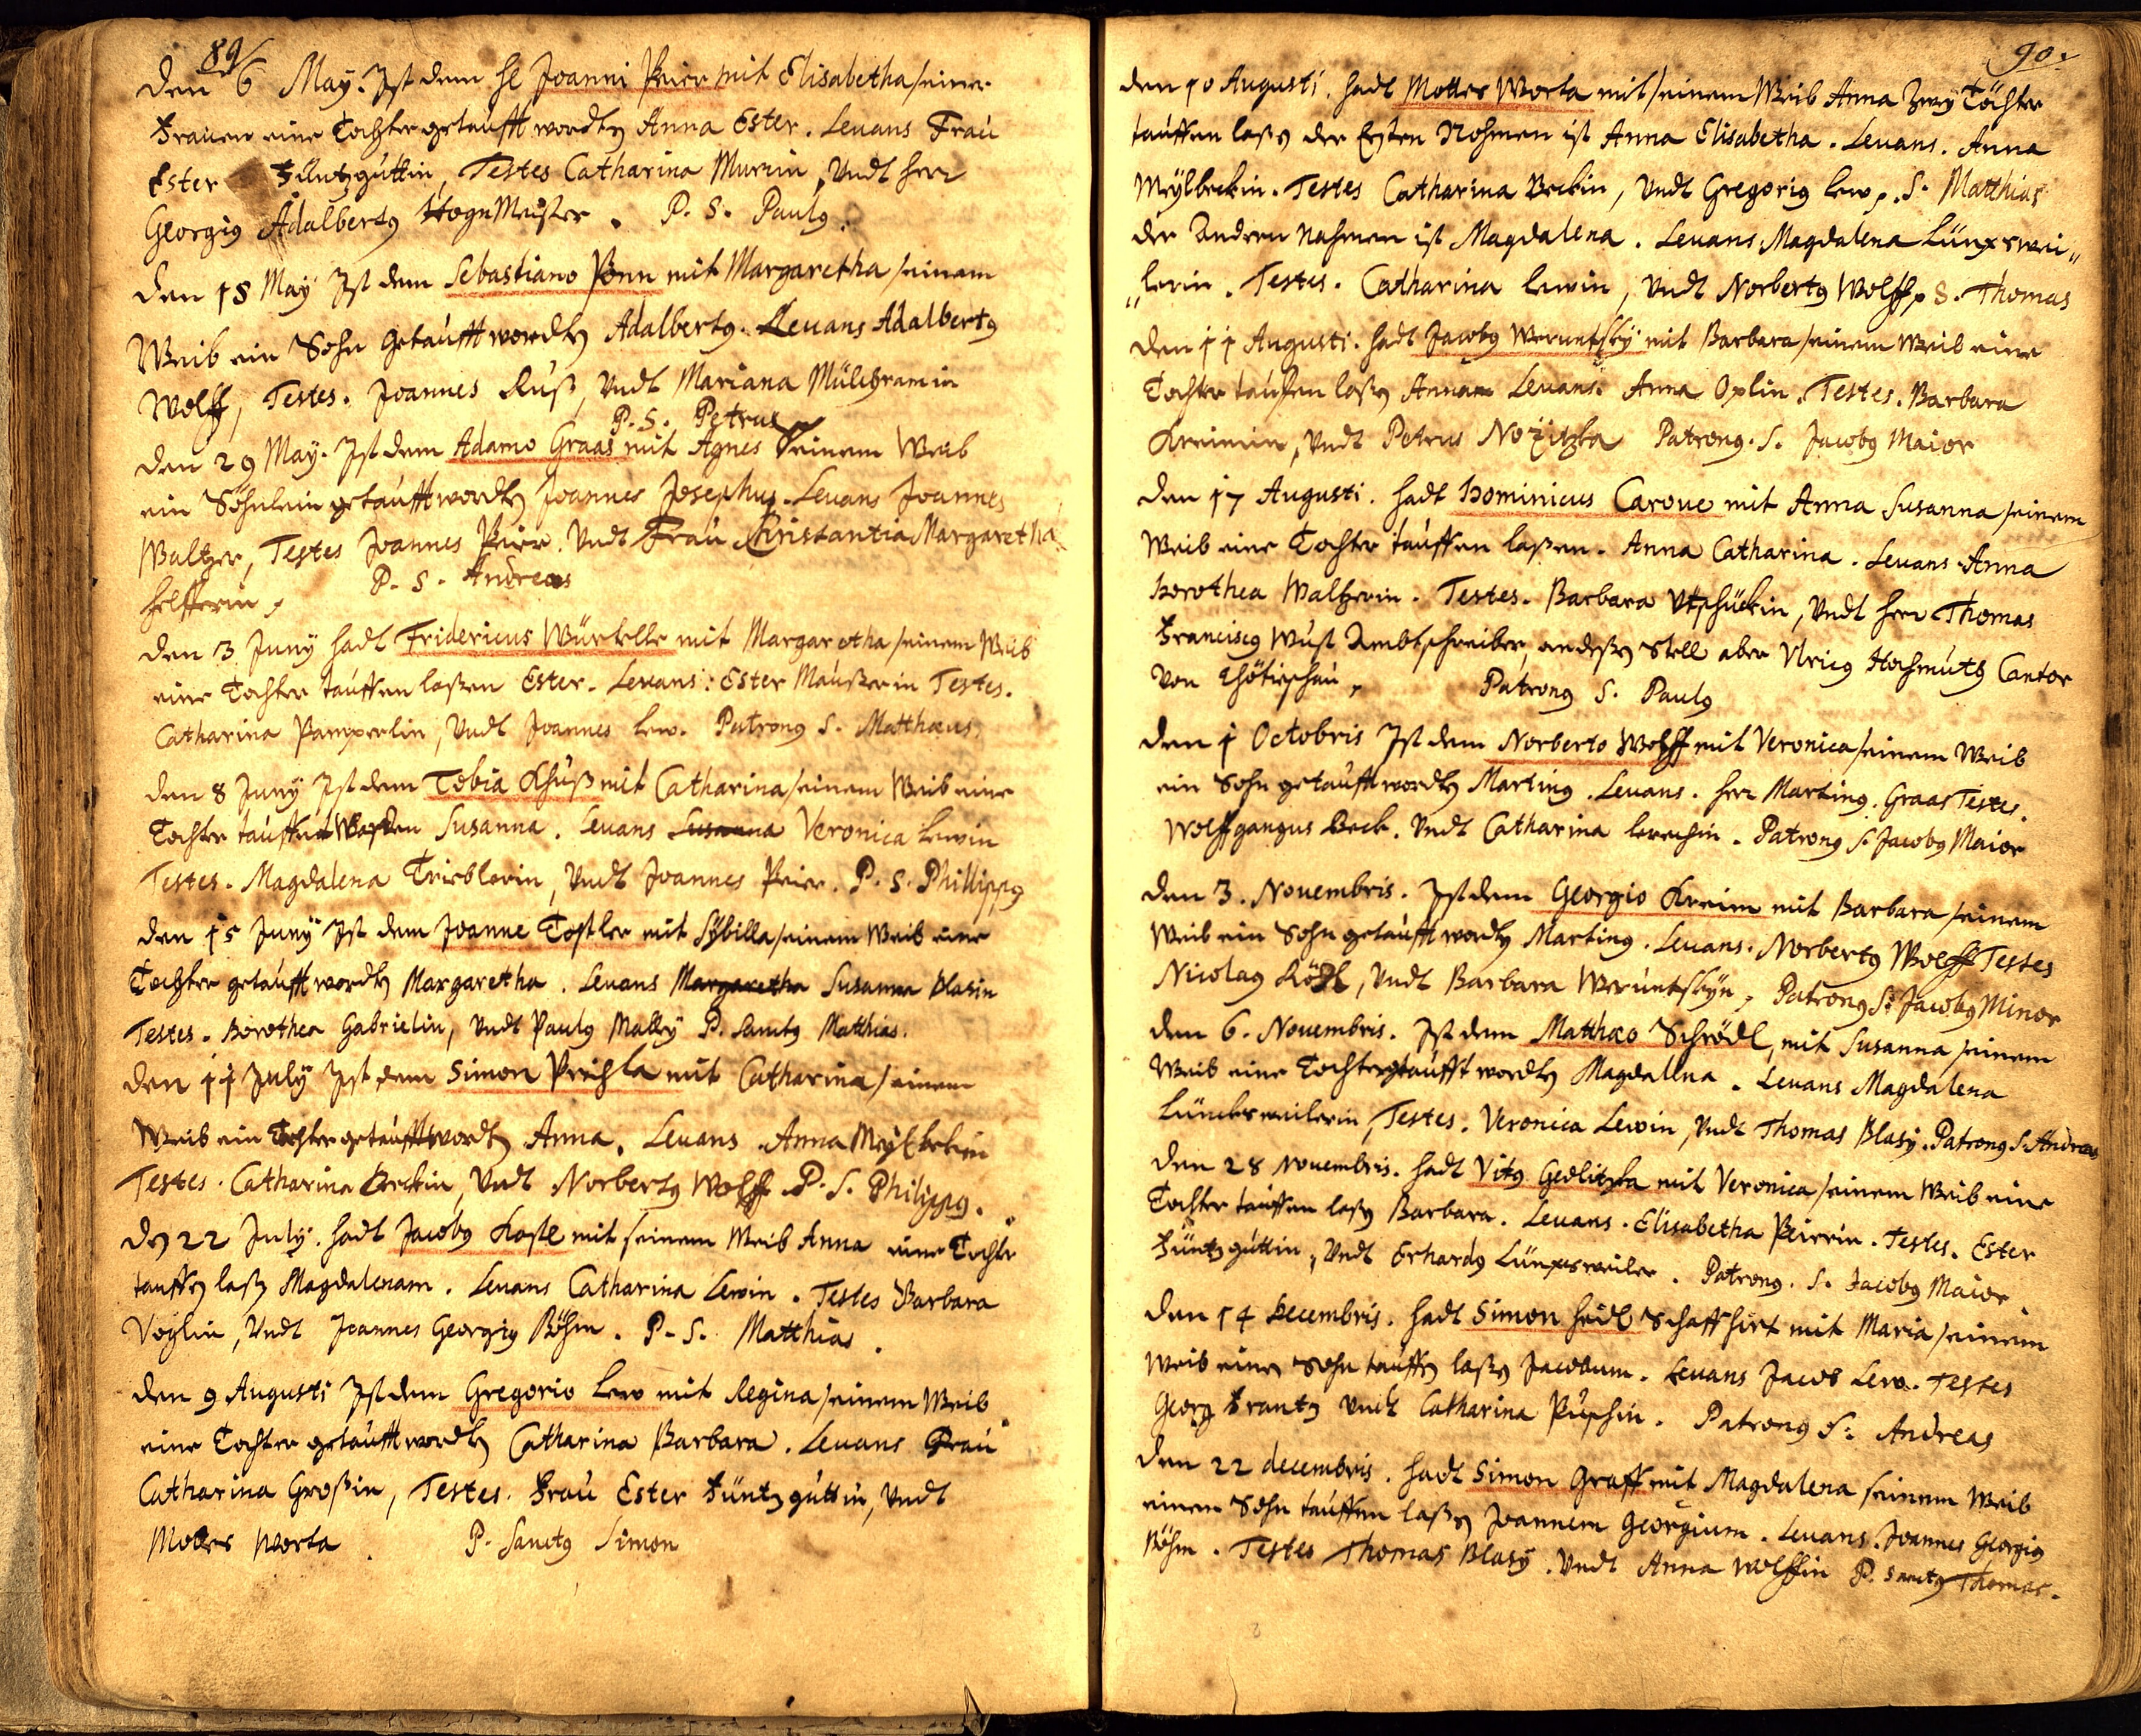 89
Den 6 May. Ist dem hl Joanni Peier mit Elisabetha seiner
Frauen eine Tochter getaufft wordtn Anna Ester. Leuans Frau
Ester Füntzguttin, Testes Catharina Murrin, Vndt herr
Georgiq Adalbertq HognMeister. P. S. Paulq.
Den 18 May Ist dem Sebastiano Pönn mit Margaretha seinem
Weib ein Sohn getaufft wordtn Adalbertq. Leuans Adalbertq
Wolff, Testes. Joannes Ruß, Vndt Mariana Mülchramin
P. S. Petrus
Den 29 May. Ist dem Adamo Graas mit Agnes Seinem Weib
ein Söhnlein getaufft wordtn Joannes Josephus. Leuans Joannes
Waltzer, Testes Joannes Peier. Vndt Frau Christantia Margaretha
helfferin, P. S. Andreas
Den 3 Juny hadt Fridericus Würkelle mit Margaretha seinem Weib
eine Tochter tauffen laßen Ester. Leuans: Ester Maußerin Testes.
Catharina Pamperlin, Vndt Joannes Lew. Patronq S. Matthæus
Den 8 Juny Ist dem Tobia Khuß mit Catharina seinem Weib eine
Tochter tauffet Worden Susanna. Leuans Susanna Veronica Lewin
Testes. Magdalena Trieblerin, Vndt Joannes Peier. P. S. Philippq
Den 15 Juny Ist dem Joanne Tostler mit Sybilla seinem Weib eine
Tochter getaufft wordtn Margaretha. Leuans Margaretha Susanna Blasin
Testes. Dorothea Gabrielin, Vndt Paulq Malky P. Sanctq Matthias.
Den 11 July Ist dem Simon Prichla mit Catharina seinem
Weib ein Tochter getaufft wordtn Anna. Leuans Anna Meylbekin
Testes. Catharina Beckin, Vndt Norbertq Wolff. P. S. Philippq.
Dn 22 July. hadt Jacobq Kastl mit seinem Weib Anna eine Tochter
tauffn laßn Magdalenam. Leuans Catharina Lewin. Testes Barbara
Voglin, Vndt Joannes Georgiq Böhm. P. S. Matthias.
Den 9 Augusti Ist dem Gregorio Lew mit Regina seinem Weib
eine Tochter getaufft wordtn Catharina Barbara. Leuans Frau
Catharina Großin, Testes. Frau Ester Füntzguttin, Vndt
Mottes Worta. P. Sanctq Simon
90.
Den 10 Augusti. hadt Mottes Worta mit seinem Weib Anna Zwey Töchter
tauffen laßn der Ersten Nohmen ist Anna Elisabetha. Leuans. Anna
Meylbeckin. Testes Catharina Beckin, Vndt Gregoriq Lew, S. Matthias
der Andren Nahmen ist Magdalena. Leuans Magdalena Lünxswei„
„lerin. Testes. Catharina Lewin, Vndt Norbertq Wolff, S. Thomas
Den 11 Augusti. hadt Jacobq Weruntsky mit Barbara seinem Weib eine
Tochter taufen laßn Annam Leuans. Anna Oxlin. Testes. Barbara
Kreimin, Vndt Petrus Nozitzka Patronq. S. Jacobq Maior
Den 17 Augusti. hadt Dominicus Caroue mit Anna Susanna seinem
Weib eine Tochter tauffen laßen. Anna Catharina. Leuans Anna
Dorothea Waltzerin. Testes. Barbara Utschückin, Vndt herr Thomas
Franciscq Wust Ambtschreiber, an deßn Stell aber Vlricq Hochmuth Cantor
Von Chötieschau, Patronq S. Paulq
Den 1 Octobris Ist dem Norberto Wolff mit Veronica seinem Weib
ein Sohn getaufft wordtn Martinq. Leuans. herr Martinq. Graas Testes.
Wolffgangus Beck. Vndt Catharina Lerchin. Patronq S. Jacobq Maior
Den 3. Nouembris. Ist dem Georgio Kreim mit Barbara seinem
Weib ein Sohn getaufft wordtn Martinq. Leuans. Norbertq Wolff Testes
Nicolaq Rödl, Vndt Barbara Weruntskyn, Patronq S: Jacobq Minor
Den 6. Nouembris. Ist dem Matthæo Schrödl, mit Susanna seinem
Weib eine Tochter getaufft wordtn Magdallna. Leuans Magdalena
Lüncksweilerin, Testes. Veronica Lewin, Vndt Thomas Blasy. Patronq S. Andreas
Den 28 Nouembris. hadt Vitq Gedlitzka mit Veronica seinem Weib eine
Tochter tauffen laßn Barbara. Leuans. Elisabetha Peierin. Testes. Ester
Füntzguttin, Vndt Erhardq Lünxsweiler. Patronq. S. Jacobq Maior.
Den 14 Decembris. hadt Simon heidl Schaffhirt mit Maria seinem
Weib einen Sohn tauffn laßn Jacobum. Leuans Jacob Lew. Testes
Georg Frantz Vndt Catharina Puschin. Patronq S: Andreas
Den 22 decembris. hadt Simon Graff mit Magdalena seinem Weib
einen Sohn tauffen laßn Joannem Georgium. Leuans. Joannes Georgiq
Böhm. Testes Thomas Blasy. Vndt Anna Wolffin P. Sanctq Thomas.